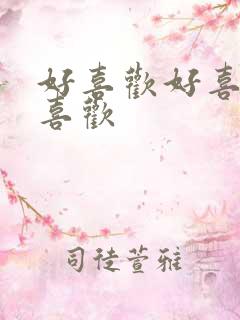 好喜歡好喜
喜歡
司徒萱雅